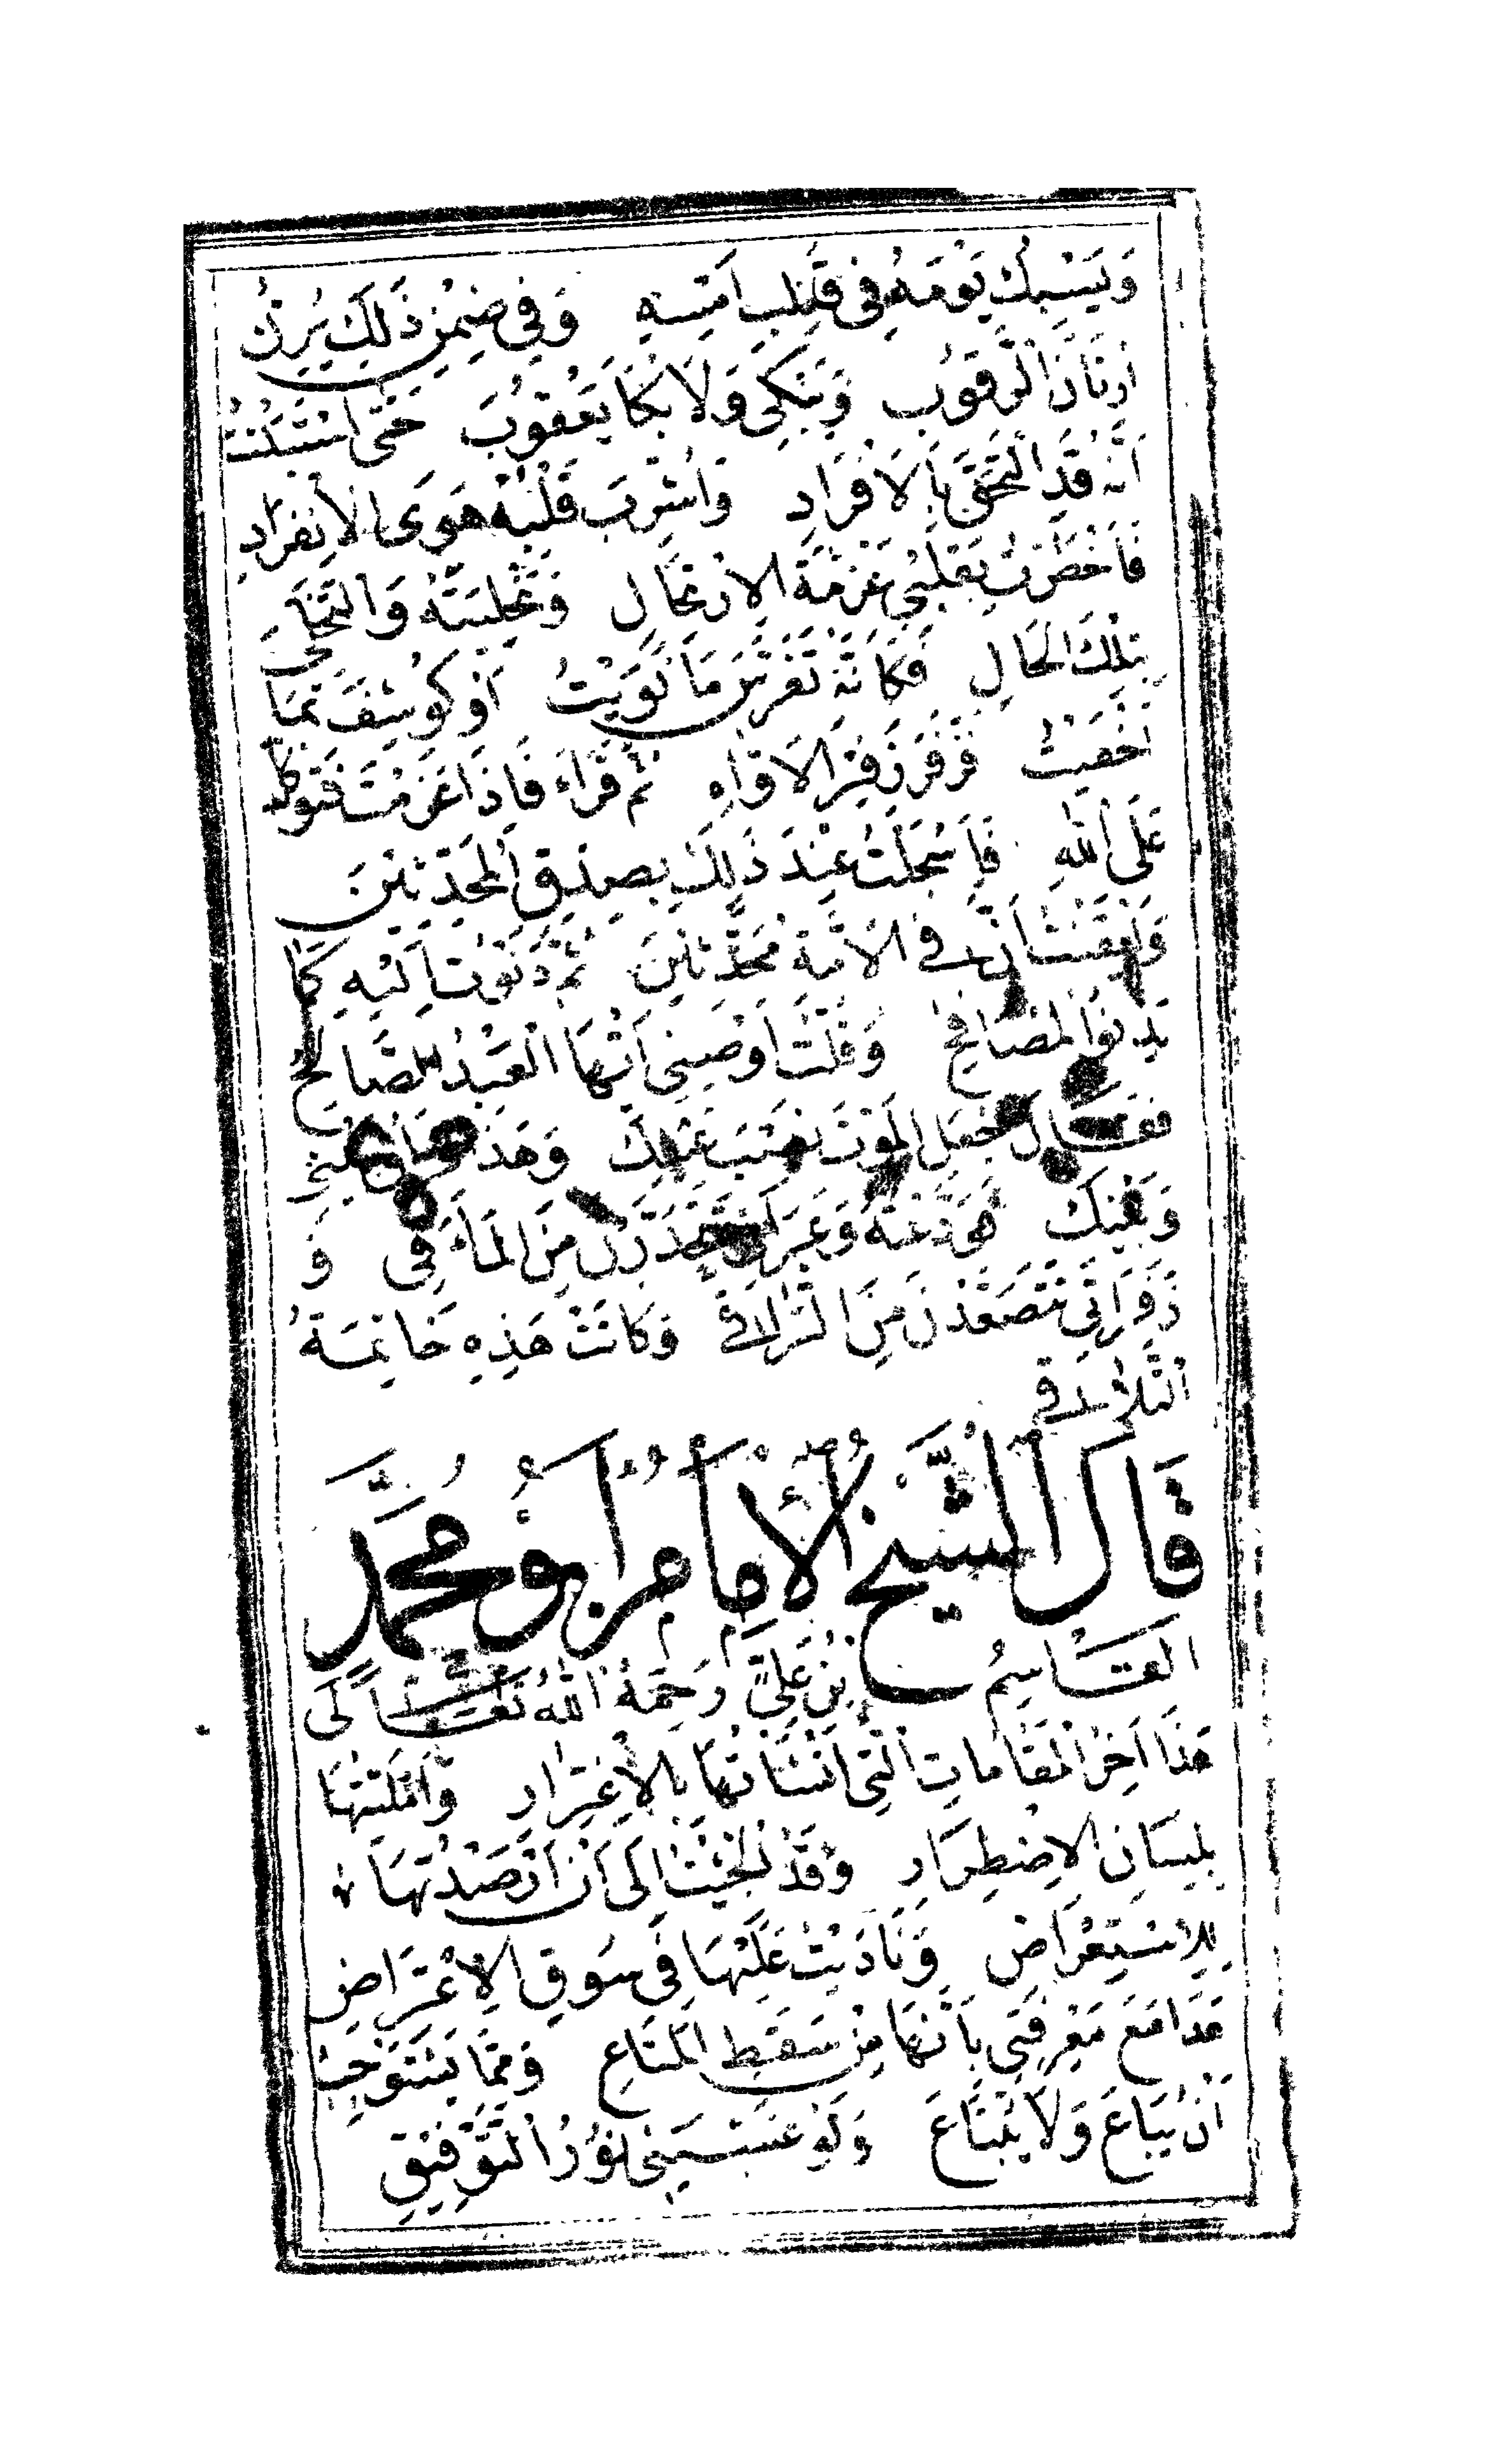 وَيَسْبِكُ يَوْمَهُ فِي قَالَبِ اَمْسِهِ وَفِي ضِمْنِ ذَلِكَ يُرِنُّ
اِرْنَانَ الرَّقُوبِ وَيَبْكِي وَلَا بُكَا يَعْقُوبَ حَتَّى اسْتَبَنْتُ
اَنَّهُ قَدِ الْتَحَقَ بِالْاَفْرَادِ وَاُشْرِبَ قَلْبُهُ هَوَى الاِنْفِرَادِ
فَاَخْطَرْتُ بِقَلْبِي عَزْمَةَ الاِرْتِحَالِ وَتَخْلِيَتَهُ وَالتَّخَلِّيَ
بِتِلْكَ الْحَالِ فَكَاَنَّهُ تَفَرَّسَ مَا نَوَيْتُ اَوْ كُوشِفَ بِمَا
اَخْفَيْتُ فَزَفَرَ زَفِيرَ الاَوَّاهِ ثُمَّ قَرَاَ فَاِذَا عَزَمْتَ فَتَوَكَّلْ
عَلَى اللّٰهِ فَاَسْجَلْتُ عِنْدَ ذَلِكَ بِصِدْقِ الْمُحَدِّثِينَ
وَاَيْقَنْتُ اَنَّ فِي الاُمَّةِ مُحَدَّثِينَ ثُمَّ دَنَوْتُ اِلَيْهِ كَمَا
يَدْنُو الْمُصَافِحُ وَقُلْتُ اَوْصِنِي اَيُّهَا الْعَبْدُ الصَّالِحُ
فَقَالَ اجْعَلِ الْمَوْتَ نَصْبَ عَيْنِكَ وَهَذَا فِرَاقُ بَيْنِي
وَبَيْنِكَ فَوَدَّعْتُهُ وَعَبَرَاتِي يَتَحَدَّرْنَ مِنَ الْمَاَقِي وَ
زَفَرَاتِي يَتَصَعَّدْنَ مِنَ التَّرَاقِي وَكَانَتْ هَذِهِ خَاتِمَةُ
التَّلَاقِي
قَالَ الشَّيْخُ الْاِمَامُ اَبُو مُحَمَّدٍ
القَاسِمُ بْنُ عَلِيٍّ رَحِمَهُ اللّٰهُ تَعَالَى
هَذَا اَخِرُ الْمَقَامَاتِ الَّتِي اَنْشَاْتُهَا بِالاِغْتِرَارِ وَاَمْلَيْتُهَا
بِلِسَانِ الاِضْطِرَارِ وَقَدْ اُلْجِئْتُ اِلَى اَنْ اَرْصَدْتُهَا
لِلِاسْتِعْرَاضِ وَنَادَيْتُ عَلَيْهَا فِي سُوقِ الاِعْتِرَاضِ
هَذَا مَعَ مَعْرِفَتِي بِاَنَّهَا مِنْ سَقَطِ الْمَتَاعِ وَمِمَّا يَسْتَوْجِبُ
اَنْ يُبَاعَ وَلَا يُبْتَاعَ وَلَوْ غَشِيَنِي نُورُ التَّوْفِيقِ